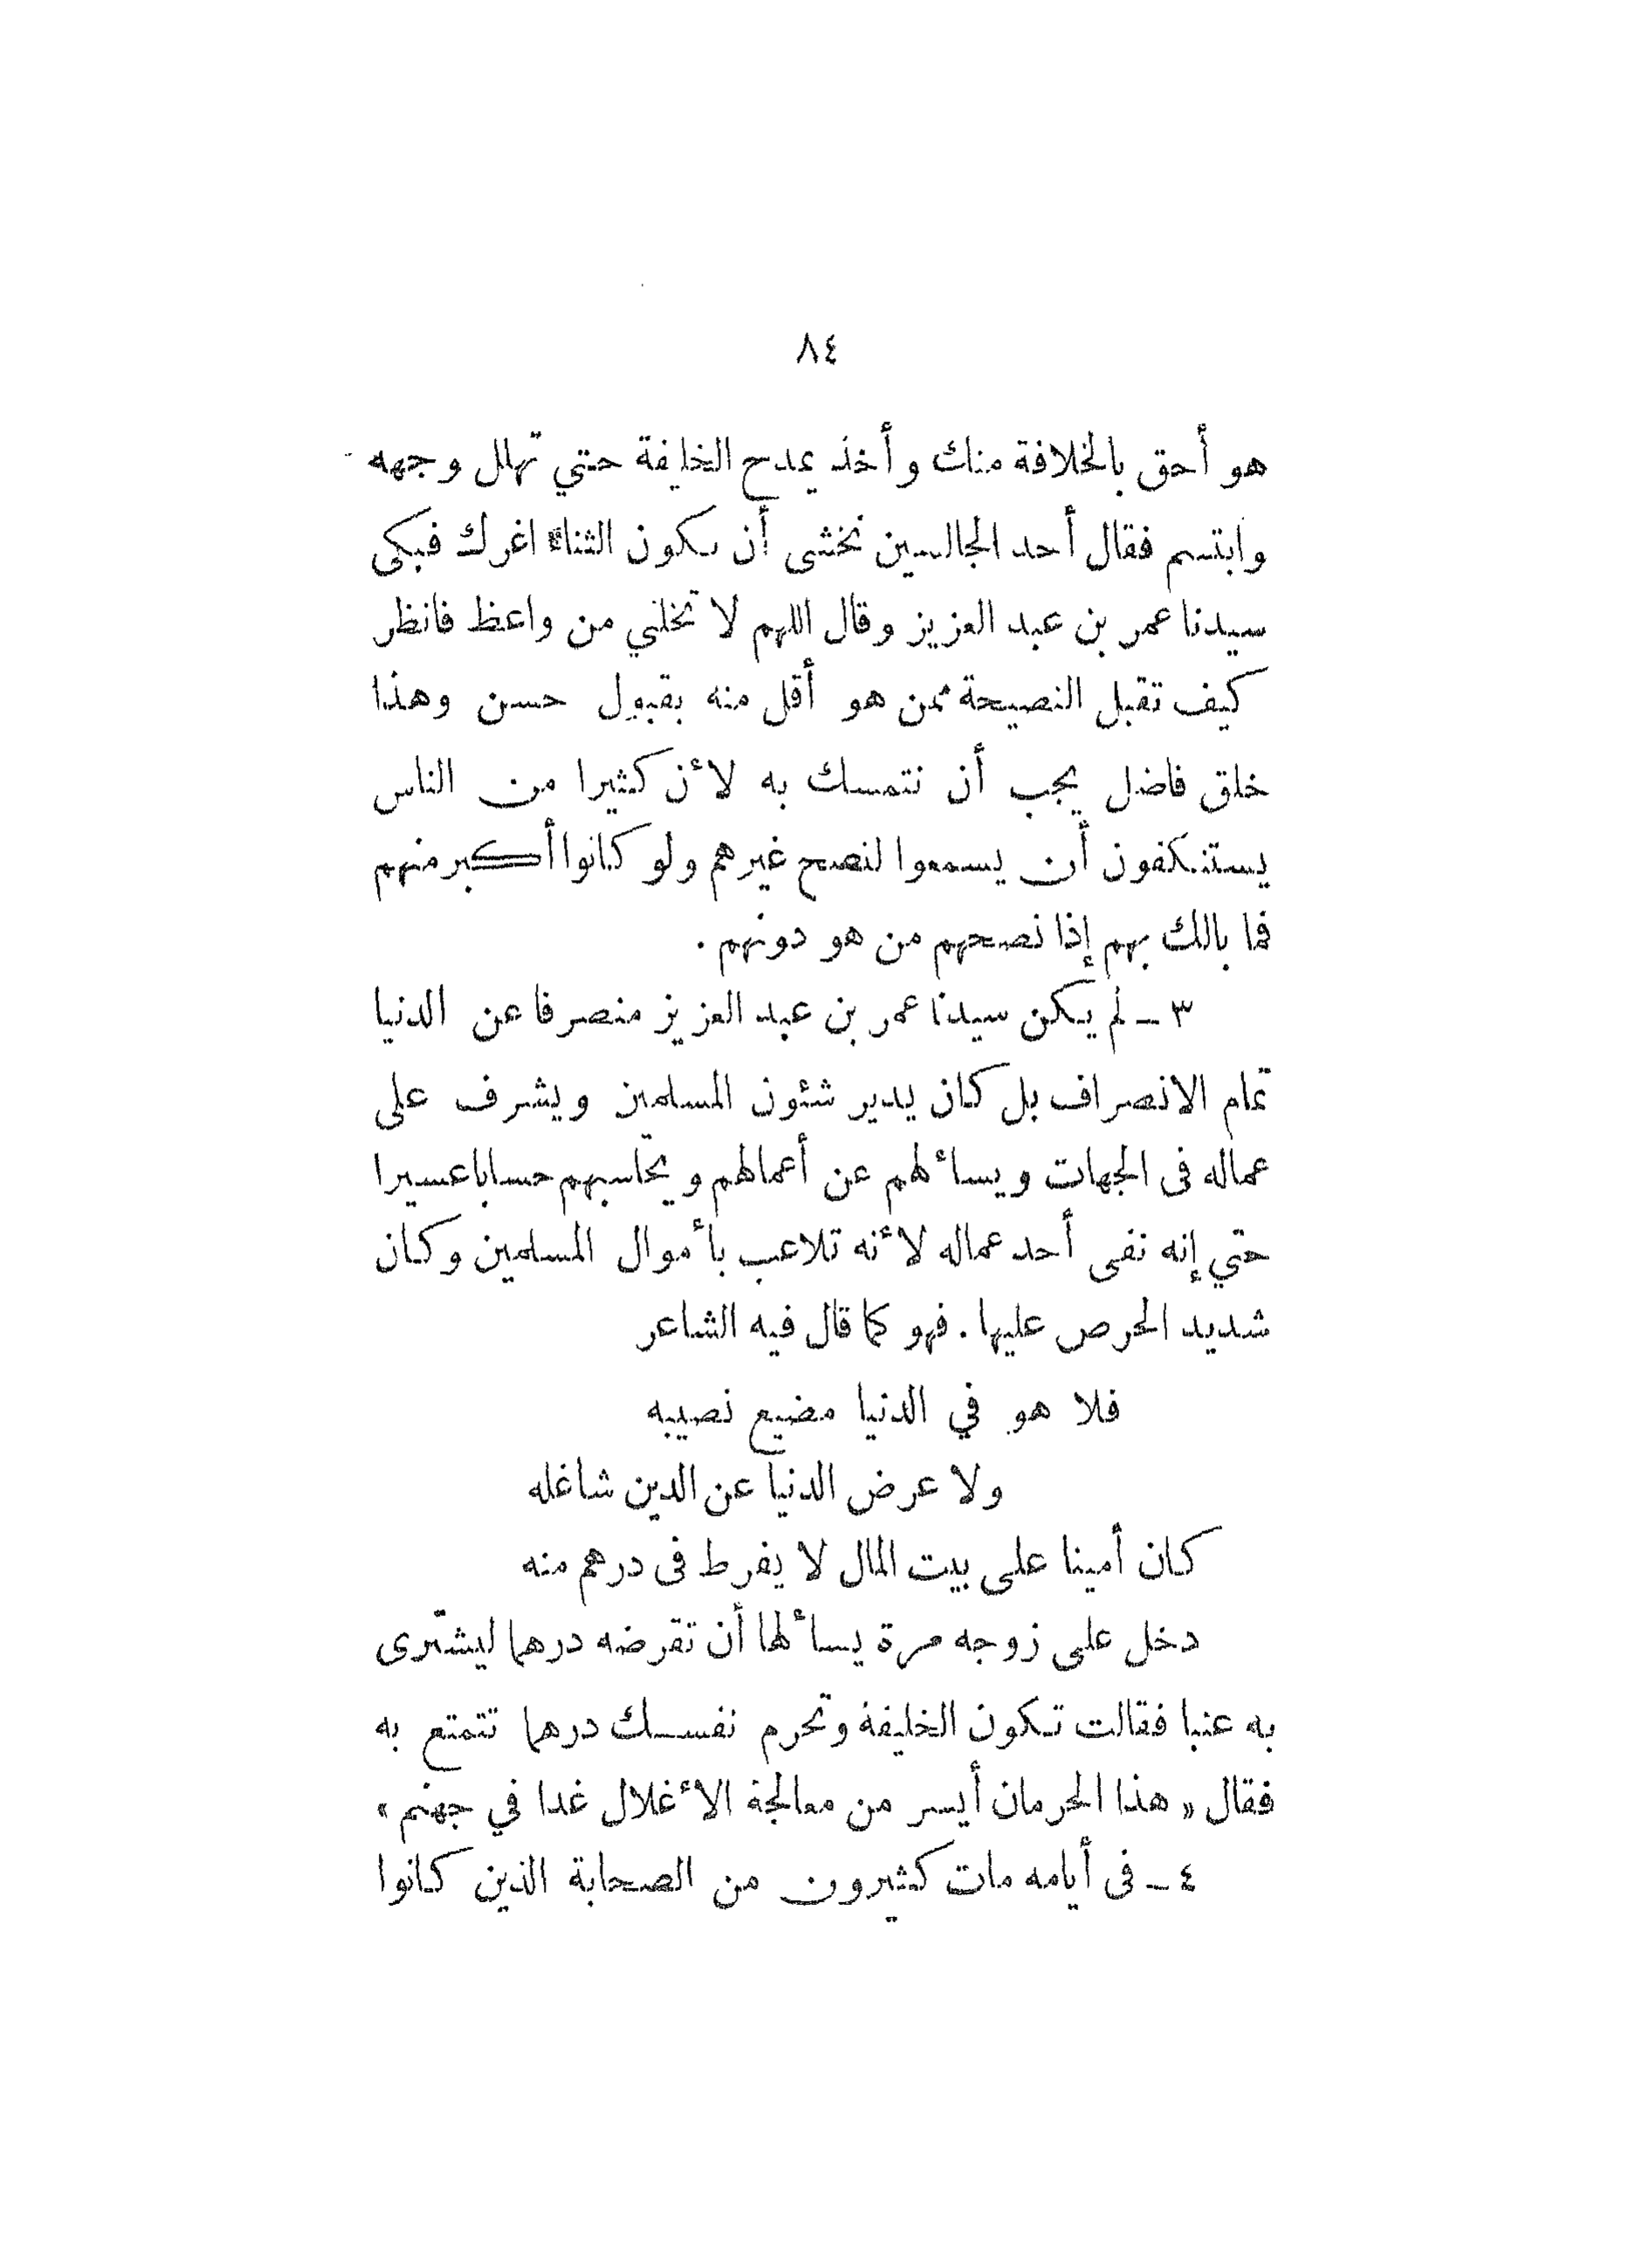 ٨٤
هو أحق بالخلافة منك وأخذ يمدح الخليفة حتي تهلل وجهه
وابتسم فقال أحد الجالسين نخشى أن يكون الثناء اغرك فبكى
سيدنا عمر بن عبد العزيز وقال اللهم لا تخلني من واعظ فانظر
كيف تقبل النصيحة ممن هو أقل منه بقبول حسن وهذا
خلق فاضل يجب أن نتمسك به لأن كثيرا من الناس
يستنكفون أن يسمعوا لنصح غيرهم ولو كانوا أكبر منهم
فما بالك بهم إذا نصحهم من هو دونهم .
٣ ـ لم يكن سيدنا عمر بن عبد العزيز منصرفا عن الدنيا
تمام الانصراف بل كان يدير شئون المسلمين ويشرف على
عماله فى الجهات ويسألهم عن أعمالهم ويحاسبهم حسابا عسيرا
حتي إنه نفى أحد عماله لأنه تلاعب بأموال المسلمين وكان
شديد الحرص عليها . فهو كما قال فيه الشاعر
فلا هو في الدنيا مضيع نصيبه
ولا عرض الدنيا عن الدين شاغله
كان أمينا على بيت المال لا يفرط فى درهم منه
دخل على زوجه مرة يسألها أن تقرضه درهما ليشترى
به عنبا فقالت تكون الخليفة وتحرم نفسك درهما تتمتع به
فقال « هذا الحرمان أيسر من معالجة الأغلال غدا في جهنم »
٤ ـ فى أيامه مات كثيرون من الصحابة الذين كانوا